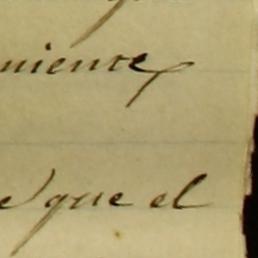 niente
e que el